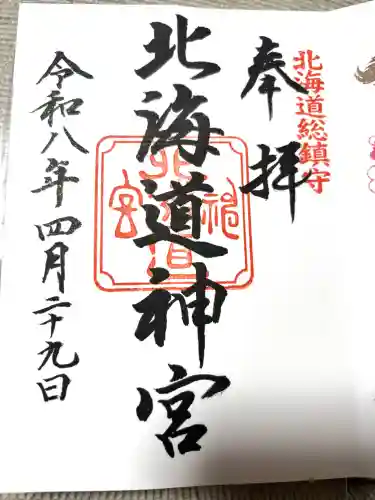 北海道総鎮守
奉拝
北海道神宮
令和八年四月二十九日